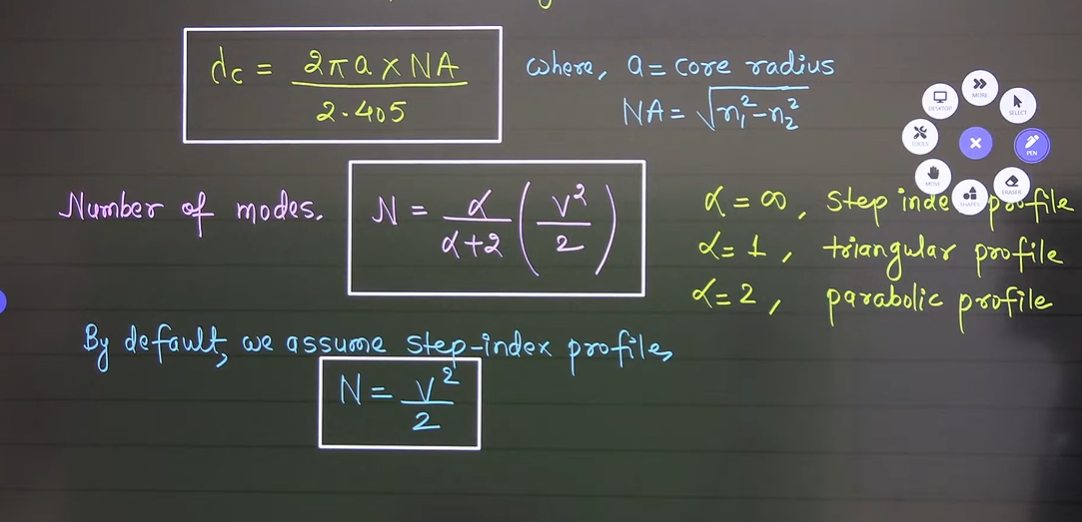 dc = 2πa × NA / 2.405
where, a = core radius
NA = √n₁² - n₂²
MORE
DESKTOP
SELECT
TOOLS
PEN
MOVE
SHAPES
ERASER
Number of modes.
N = α / α+2 (V² / 2)
α = ∞, step inde profile
α = 1, triangular profile
α = 2, parabolic profile
By default, we assume step-index profile,
N = V² / 2